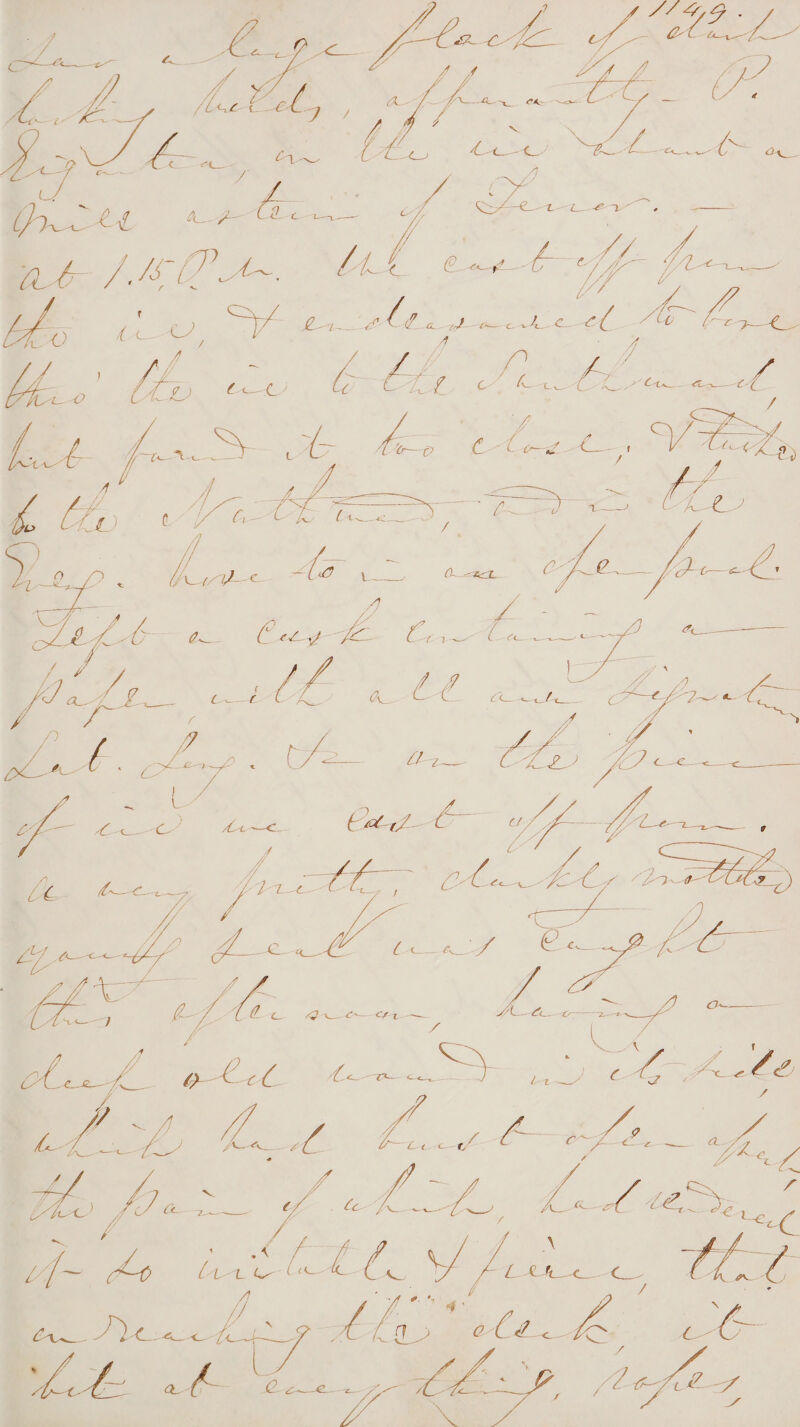 1149.
Saw a large flock of dark
looking birds, apparantly - P.
Gigantea, on the ice about a
Mile astern of Terror. —
At 1.15, P.M. the cast off from
the ice, & endeavoured to bore
thro' the ice to the Southward,
but found it too close, & tacked
to the Northward, and in the
Eveng. hove to in an open pool.
Left a Cask containing a
paper with all our Signatures
Lat. Long. &c on the piece
of ice we cast off from.
A very pretty, darkly mottled
young Seal was Caught
this afternoon, having a
deep old wound in its side
which had burst open afresh,
the pain of which, had rendered
it so irritable & fierce, that
on reaching the deck, it
bit at every thing, ropes,